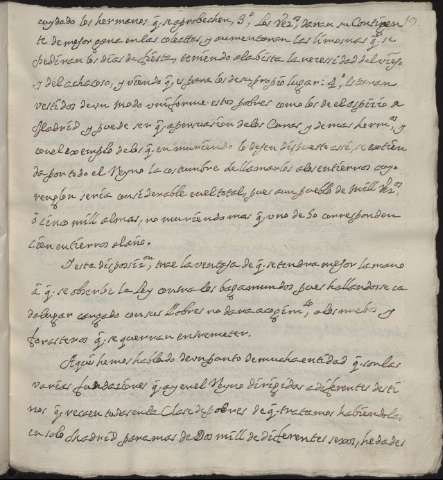 cuydado los hermanos q. se aprobechen, 3.º los Vez.os daran su contingen
te de mejor gana en las colectas, y aumentaran las limosnas q. se
pediran los dias de fiesta, teniendo a la bista la necesidad del viejo
y del achacoso, y viendo q. es para los de su propio lugar: 4.º si tuvieran
vestidos de un modo uniforme estos pobres como los de el ospicio de
Madrid y puede ser q. a persuasion de los Curas, y demas herm.os, y
con el exemplo de los q. en muriendo lo dejen dispuesto asi, se estien
da por todo el Reyno la costumbre de llamarlos a los entierros cuyo
renglon seria considerable en el total, pues a un pueblo de mill Vez.os
o cinco mill almas, no muriendo mas q. uno de 50 corresponden
cien entierros al año.
Y esta disposiz.on trae la ventaja de q. se tendra mejor la mano
à q. se observe la ley contra los bagamundos, pues hallandose ca
da lugar cargado con sus Pobres no dara acogim.to a los nuebos y
forasteros q. se quieran entremeter.
Aqui hemos hablado de un punto de mucha entidad q. son las
varias fundaciones q. ay en el Reyno dirigidas a diferentes desti
nos q. recaen todas en la Clase de Pobres de q. tratamos habiendolas
en solo Madrid para mas de Dos mill de diferentes sexos, hedades